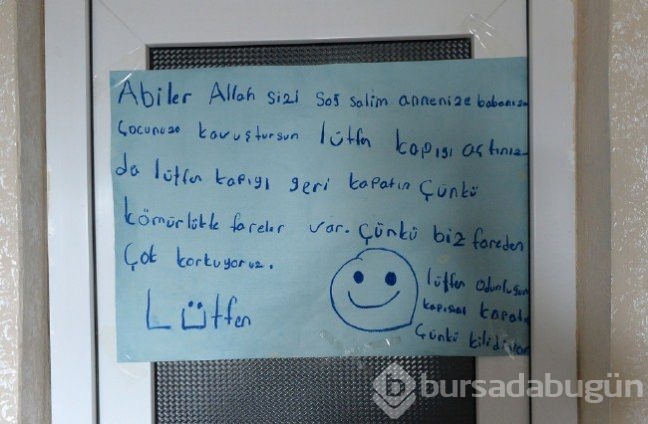 Abiler Allah sizi Sağ salim annenize babanıza
Çocunuza kavuştursun lütfen kapıyı açtınız
da lütfen kapıyı geri kapatın Çünkü
kömürlükte fareler var. Çünkü biz fareden
Çok korkuyoruz.
Lütfen
lütfen odunluğun
kapısını kapatın
Çünkü kilidi
bursadabugün